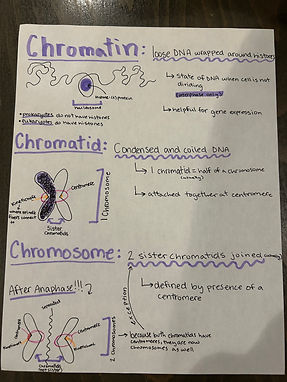 Chromatin: loose DNA wrapped around histones
state of DNA when cell is not
dividing
histone (protein)
nucleosome
helpful for gene expression
• prokaryotes do not have histones
• Eukaryotes do have histones
Chromatid: Condensed and coiled DNA
1 chromatid = half of a chromosome
(usually)
attached together at centromere
Centromere
Kinetochore
1 Chromosome
Sister
Chromatids
Chromosome: 2 sister chromatids joined (usually)
defined by presence of a
centromere
After Anaphase!!!
exception
because both chromatids have
centromeres, they are now
chromosomes as well
Centromere
2 Chromosomes